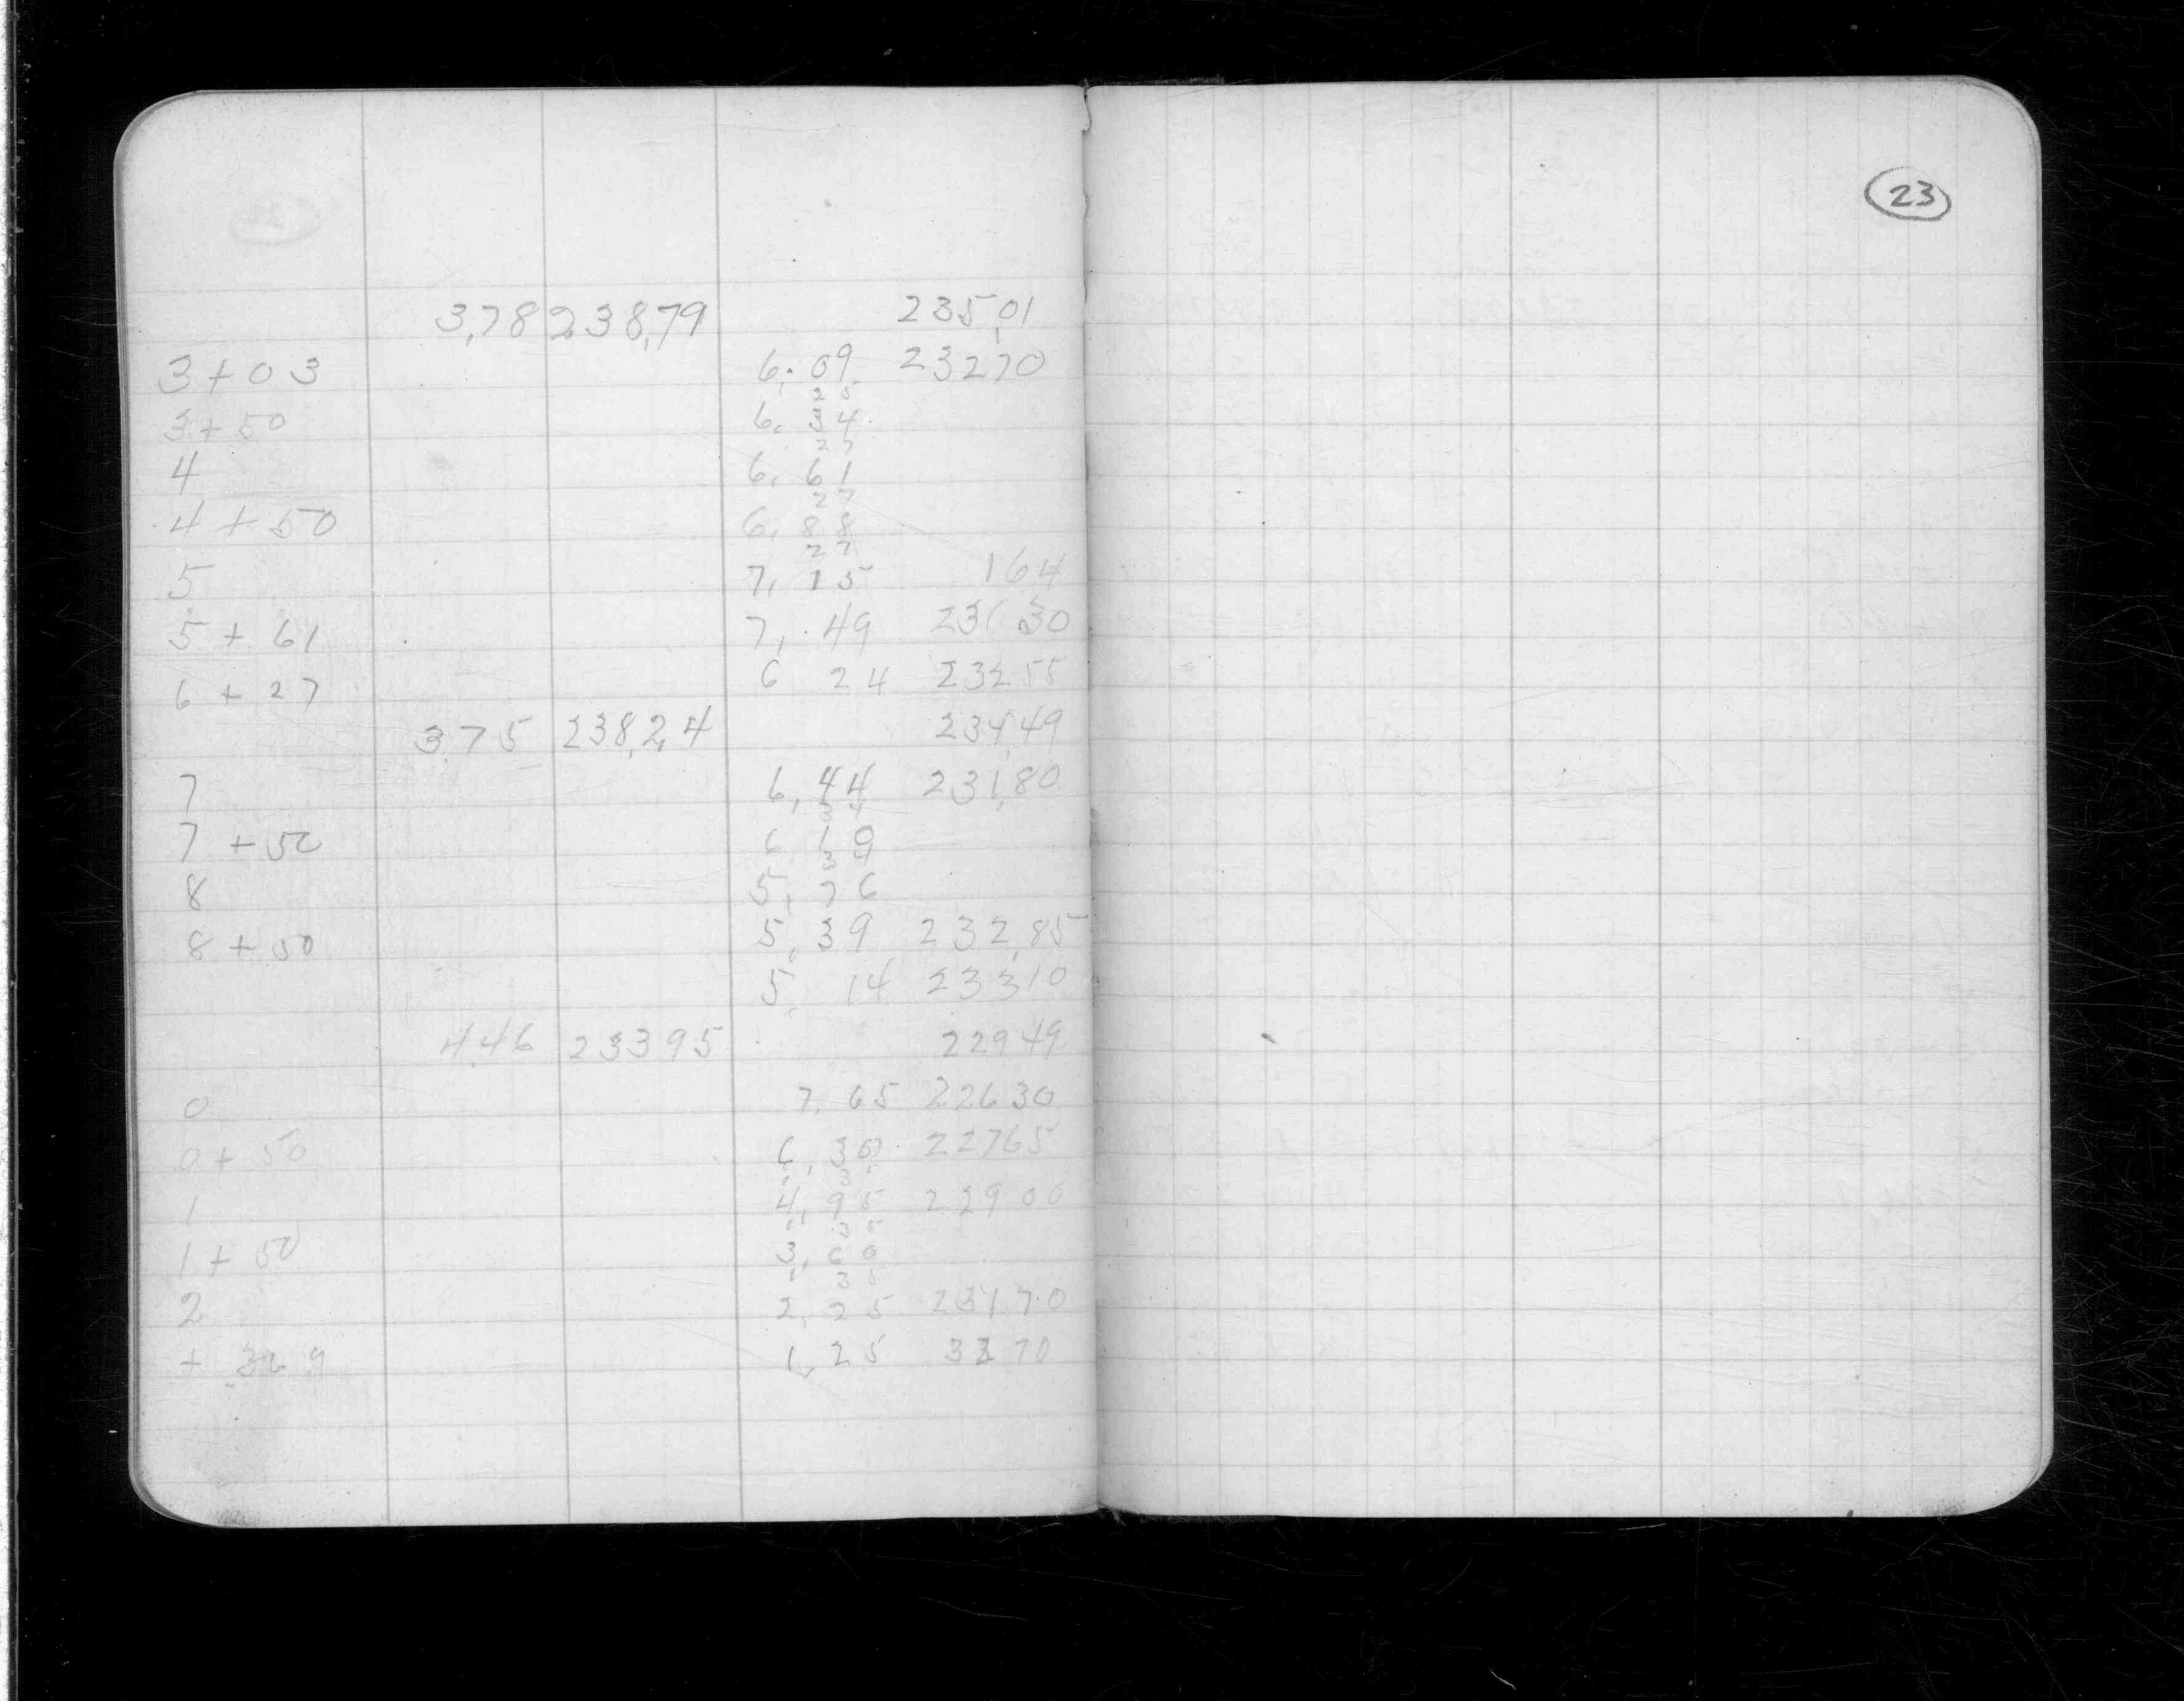 23
3,78 238,79 235,01
3+03 6.09 23270
25
3+50 6. 34
27
4 6. 61
27
4+50 6. 88
27
5 7. 15 164
5+61 7. 49 231 30
6+27 6 24 232 55
375 238,24 234,49
7 6,44 231,80
7+50 6 10
8 5, 76
8+50 5,39 232,85
5 14 233 10
446 23395 22949
0 7,65 22630
0+50 6,30 22765
1 4,95 22900
35
1+50 3,60
2 2,25 23170
1,25